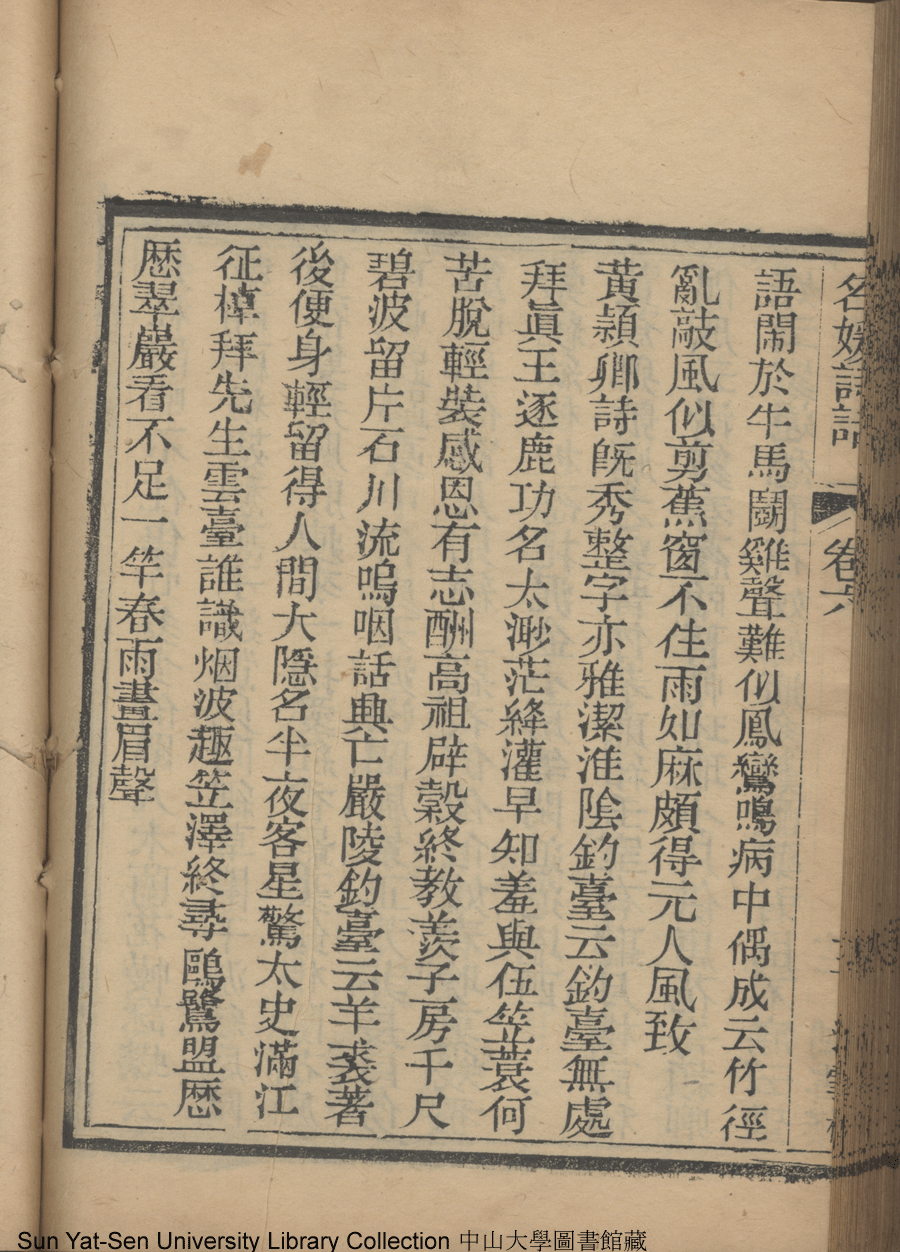 名媛詩話 卷六
語鬧於牛馬鬭雞聲難似鳳鸞鳴病中偶成云竹徑
亂敲風似剪蕉窗不住雨如麻頗得元人風致
黄潁卿詩旣秀整字亦雅潔淮陰釣臺云釣臺無處
拜眞王逐鹿功名太渺茫絳灌早知羞與伍笠蓑何
苦脫輕裝感恩有志酬高祖辟穀終教羨子房千尺
碧波留片石川流嗚咽話興亡嚴陵釣臺云羊裘著
後便身輕留得人間大隱名半夜客星驚太史滿江
征棹拜先生雲臺誰識烟波趣笠澤終尋鷗鷺盟歷
歷翠巖看不足一竿春雨畫眉聲
Sun Yat-Sen University Library Collection 中山大學圖書館藏